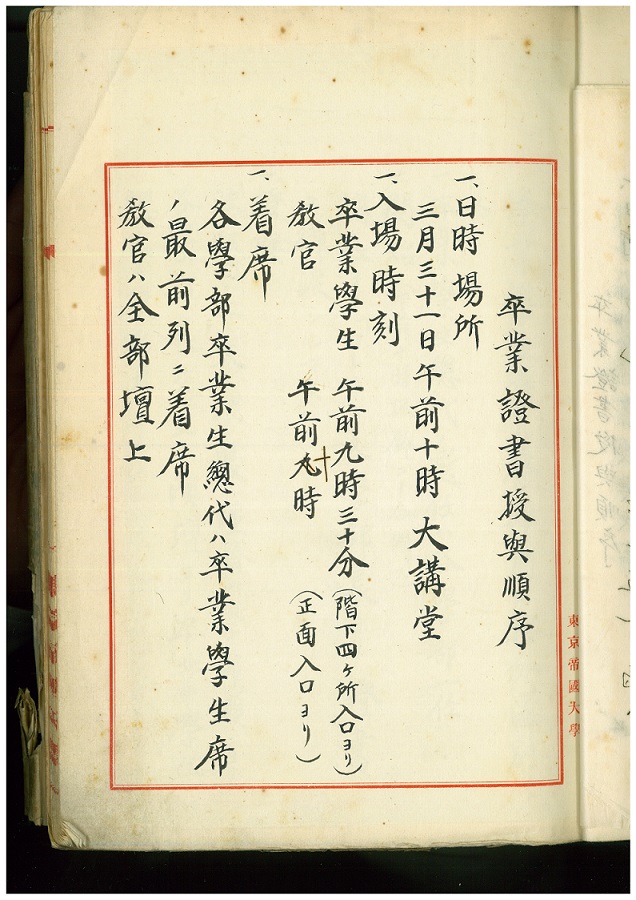 卒業證書授與順序
一、日時場所
三月三十一日午前十時大講堂
一、入場時刻
卒業學生 午前九時三十分(階下四ヶ所入口ヨリ)
教官 午前十時(正面入口ヨリ)
一、着席
各學部卒業生總代ハ卒業學生席
ノ最前列ニ着席
教官ハ全部壇上
東京帝國大學